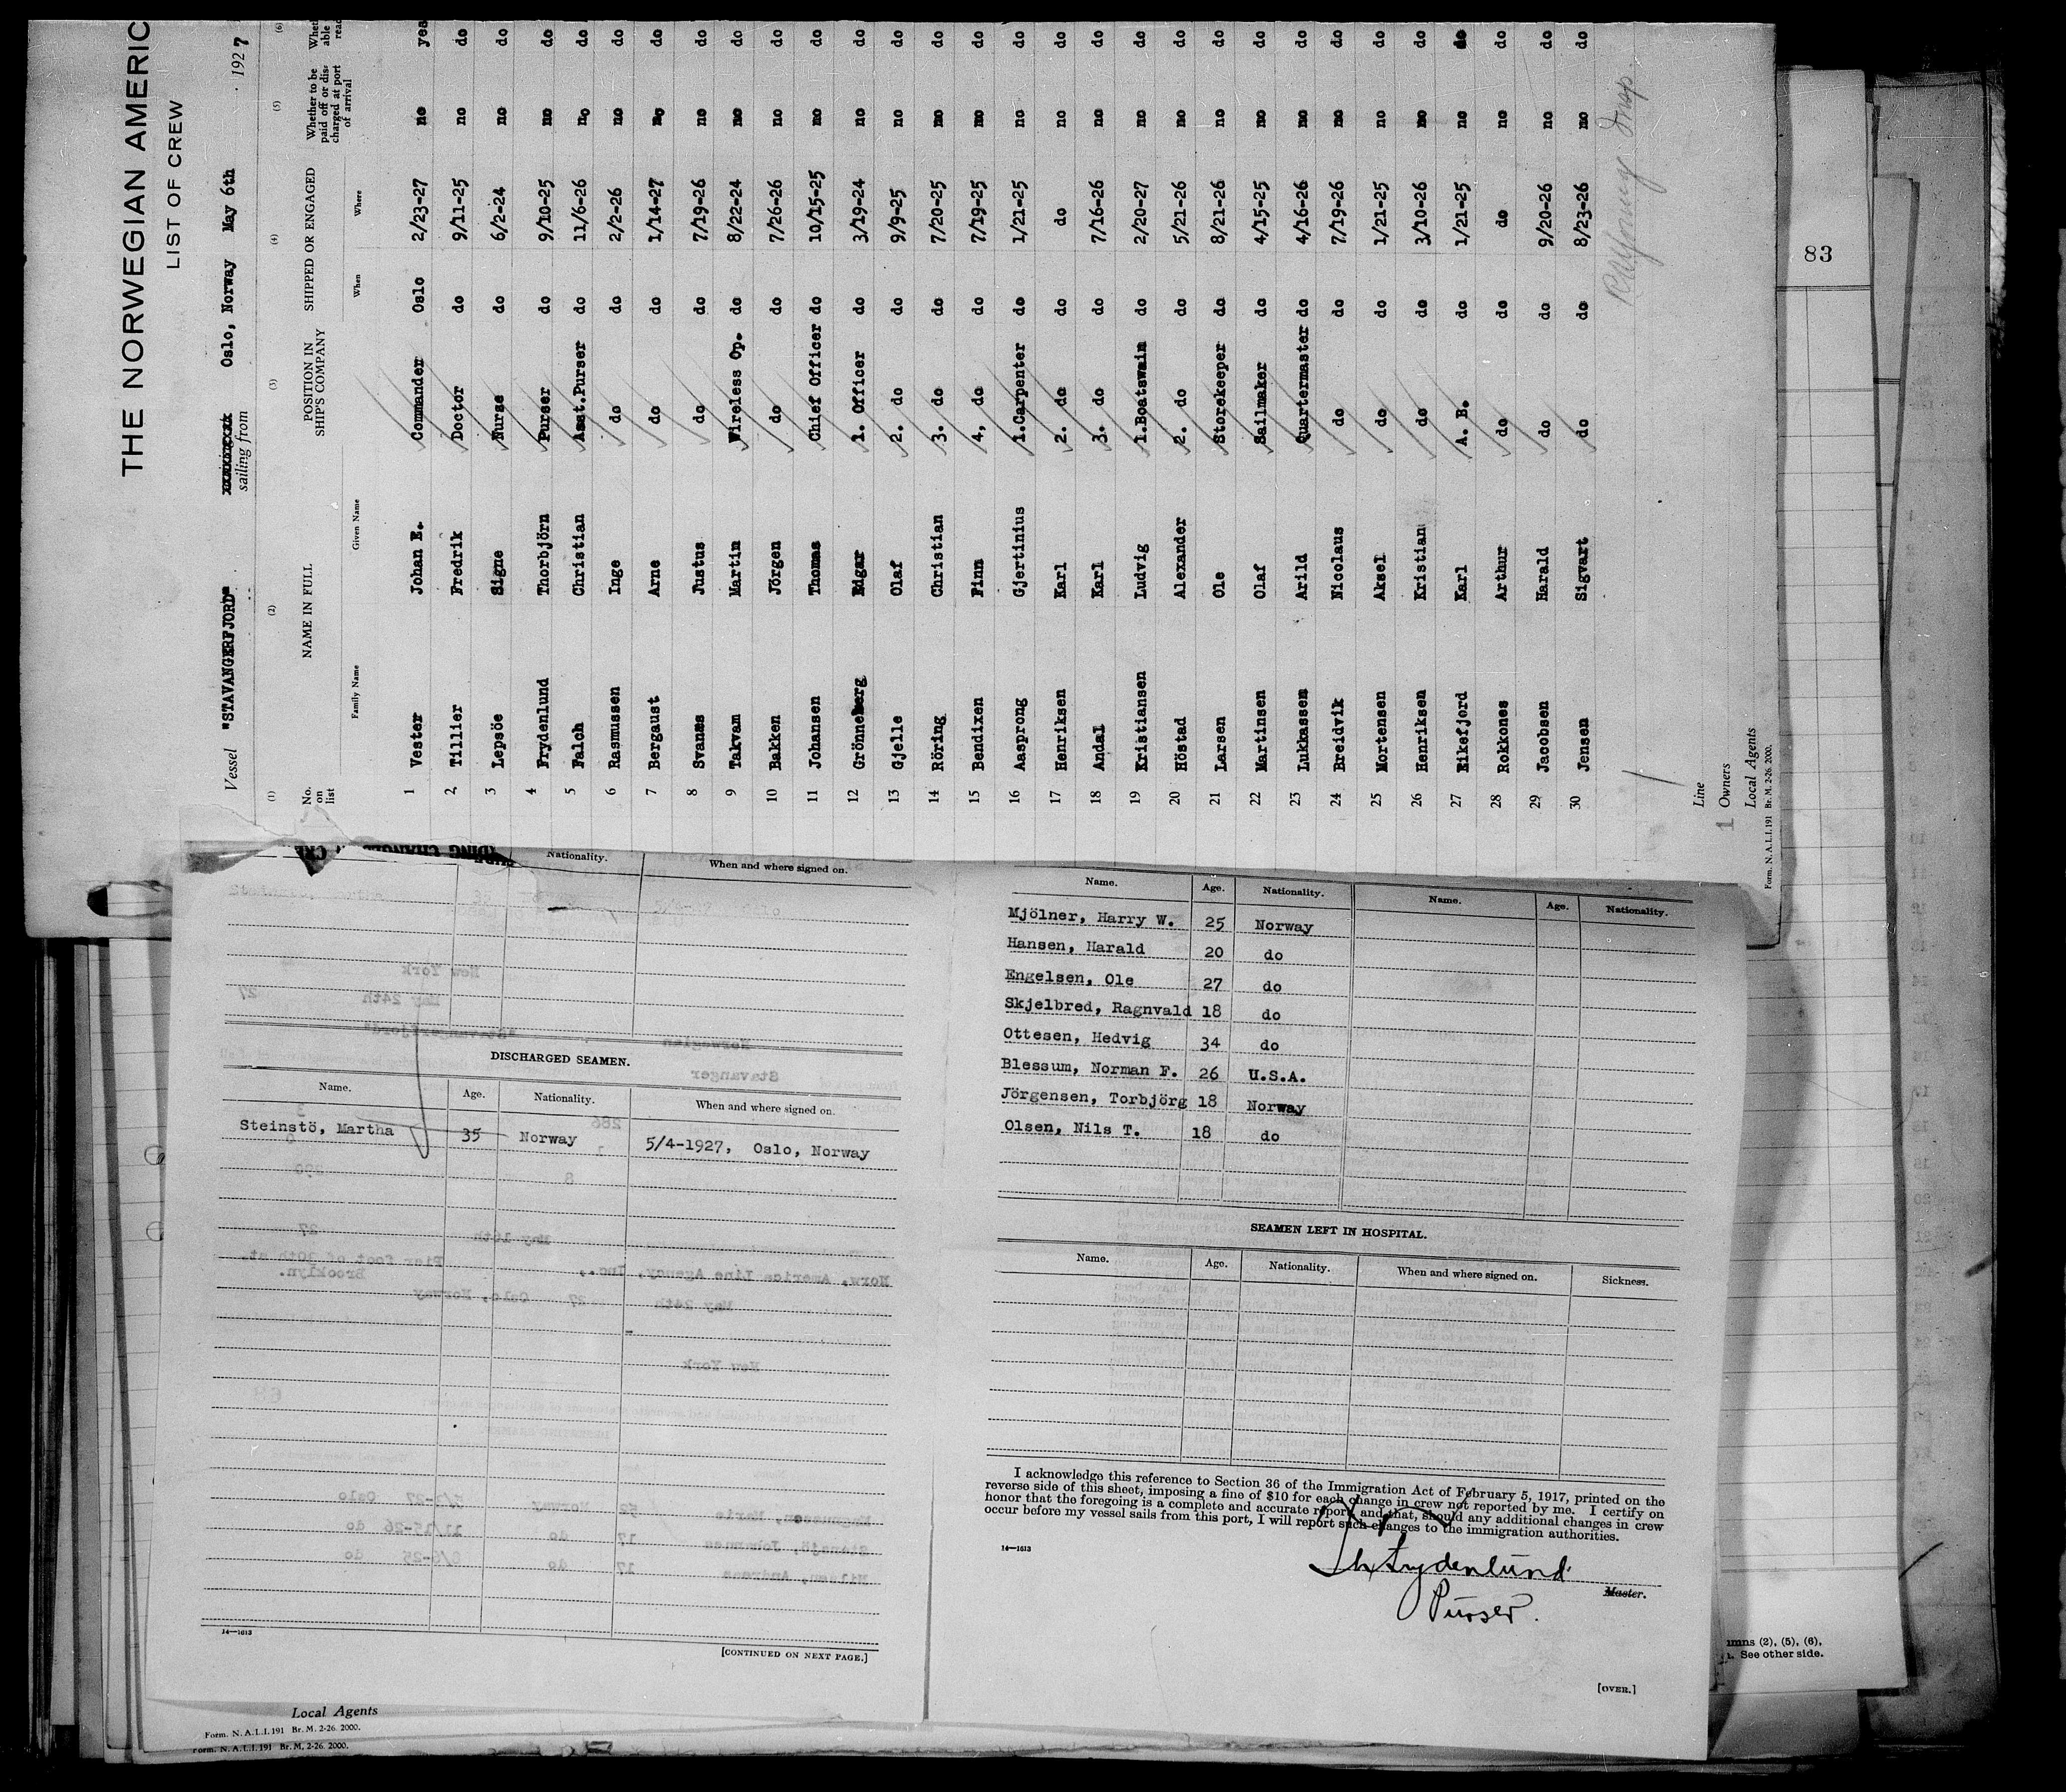 THE NORWEGIAN AMERIC
LIST OF CREW
Vessel "STAVANGERFJORD" sailing from Oslo, Norway May 6th 1927
(1) (2) (3) (4) (5) (6)
No. on list NAME IN FULL POSITION IN SHIP'S COMPANY SHIPPED OR ENGAGED Whether to be paid off or discharged at port of arrival
Family Name Given Name When Where
1 Vester Johan E. Commander Oslo 2/23-27 no yes
2 Tillier Fredrik Doctor do 9/11-25 no do
3 Lepsöe Signe Nurse do 6/2-24 no do
4 Frydenlund Thorbjörn Purser do 9/10-25 no do
5 Falch Christian Asst.Purser do 11/6-26 no do
6 Rasmussen Inge do do 2/2-26 no do
7 Bergaust Arne do do 1/14-27 no do
8 Svanæs Justus do do 7/19-26 no do
9 Takvam Martin Wireless Op. do 8/22-24 no do
10 Bakken Jörgen do do 7/26-26 no do
11 Johansen Thomas Chief Officer do 10/15-25 no do
12 Grönneberg Edgar 1. Officer do 3/19-24 no do
13 Gjelle Olaf 2. do do 9/9-25 no do
14 Röring Christian 3. do do 7/20-25 no do
15 Bendixen Finn 4, do do 7/19-25 no do
16 Aasprong Gjertinius 1.Carpenter do 1/21-25 no do
17 Henriksen Karl 2. do do do no do
18 Andal Karl 3. do do 7/16-26 no do
19 Kristiansen Ludvig 1.Boatswain do 2/20-27 no do
20 Höstad Alexander 2. do do 5/21-26 no do
21 Larsen Ole Storekeeper do 8/21-26 no do
22 Martinsen Olaf Sailmaker do 4/15-25 no do
23 Lukkassen Arild Quartermaster do 4/16-26 no do
24 Breidvik Nicolaus do do 7/19-26 no do
25 Mortensen Aksel do do 1/21-25 no do
26 Henriksen Kristian do do 3/10-26 no do
27 Eikefjord Karl A. B. do 1/21-25 no do
28 Rokkones Arthur do do do no do
29 Jacobsen Harald do do 9/20-26 no do
30 Jensen Sigvart do do 8/23-26 no do
Line
1 Owners
Local Agents
Form. N. A. L. I. 191 Br. M. 2-26. 2000.
83
Nationality. When and where signed on.
DISCHARGED SEAMEN.
Name. Age. Nationality. When and where signed on.
Steinstö, Martha 35 Norway 5/4-1927, Oslo, Norway
14—1613
[CONTINUED ON NEXT PAGE.]
Local Agents
Form. N. A. L. I. 191 Br. M. 2-26. 2000.
Form. N. A. L. I. 191 Br. M. 2-26. 2000.
Name. Age. Nationality. Name. Age. Nationality.
Mjölner, Harry W. 25 Norway
Hansen, Harald 20 do
Engelsen, Ole 27 do
Skjelbred, Ragnvald 18 do
Ottesen, Hedvig 34 do
Blessum, Norman F. 26 U.S.A.
Jörgensen, Torbjörg 18 Norway
Olsen, Nils T. 18 do
SEAMEN LEFT IN HOSPITAL.
Name. Age. Nationality. When and where signed on. Sickness.
I acknowledge this reference to Section 36 of the Immigration Act of February 5, 1917, printed on the
reverse side of this sheet, imposing a fine of $10 for each change in crew not reported by me. I certify on
honor that the foregoing is a complete and accurate report, and that, should any additional changes in crew
occur before my vessel sails from this port, I will report such changes to the immigration authorities.
14—1613
Th Frydenlund
Master.
Purser.
[OVER.]
umns (2), (5), (6),
See other side.